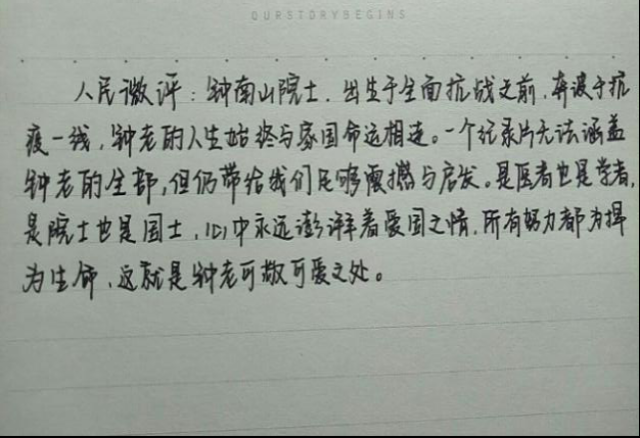 OURSTORYBEGINS
人民微评:钟南山院士,出生于全面抗战之前,奔波于抗
疫一线,钟老的人生始终与家国命运相连。一个纪录片无法涵盖
钟老的全部,但仍带给我们足够震撼与启发。是医者也是学者,
是院士也是国士,心中永远澎湃着爱国之情,所有努力都为捍
为生命,这就是钟老可敬可爱之处。